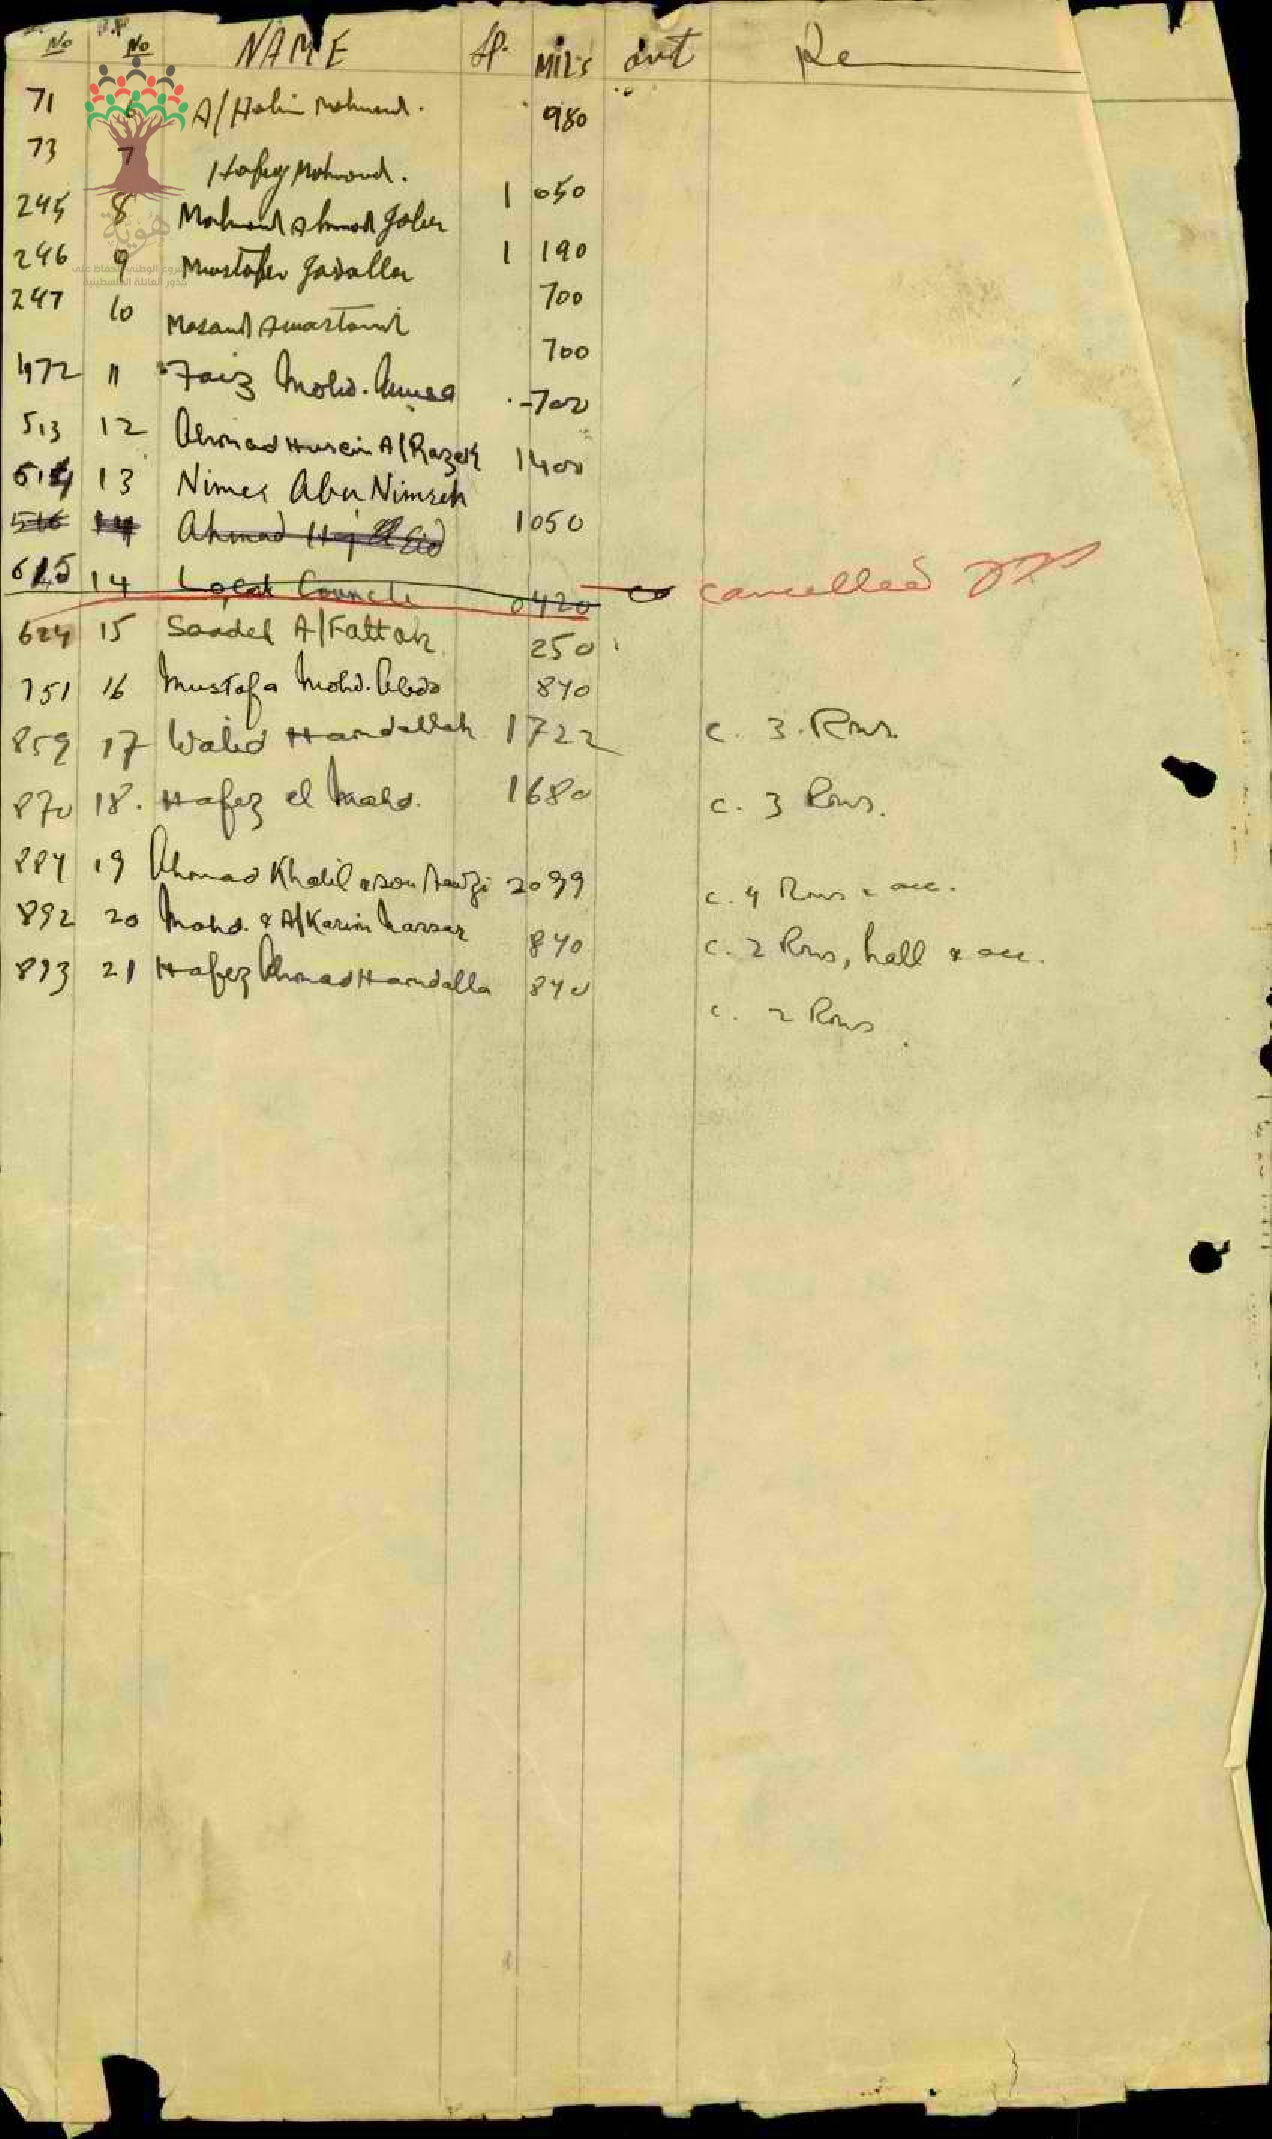 No No NAME LP. MILS amt Re
71 6 A/Halim Mahmoud. 980
73 7 Hafez Mahmoud. 1 050
245 8 Mahmoud Ahmad Jaber 1 190
246 9 Mustafa Jadalla 700
247 10 700
472 11 Faiz Mohd. 700
513 12 Ahmad Husein A/Razek 1400
514 13 Nimer Abu Nimreh 1050
516 14 Ahmad Haj Eid
615 14 Local Council 0420 cancelled
624 15 Saadel A/Fattah 250
751 16 Mustafa Mohd. Abdo 840
859 17 Walid Hamdallah 1722 c. 3 Rms.
870 18. Hafez el Mohd. 1680 c. 3 Rms.
884 19 Ahmad Khalil 2099 c. 4 Rms & acc.
892 20 Mohd. & A/Karim Nassar 840 c. 2 Rms, hall & acc.
893 21 Hafez Ahmad Hamdalla 840 c. 2 Rms
هوية